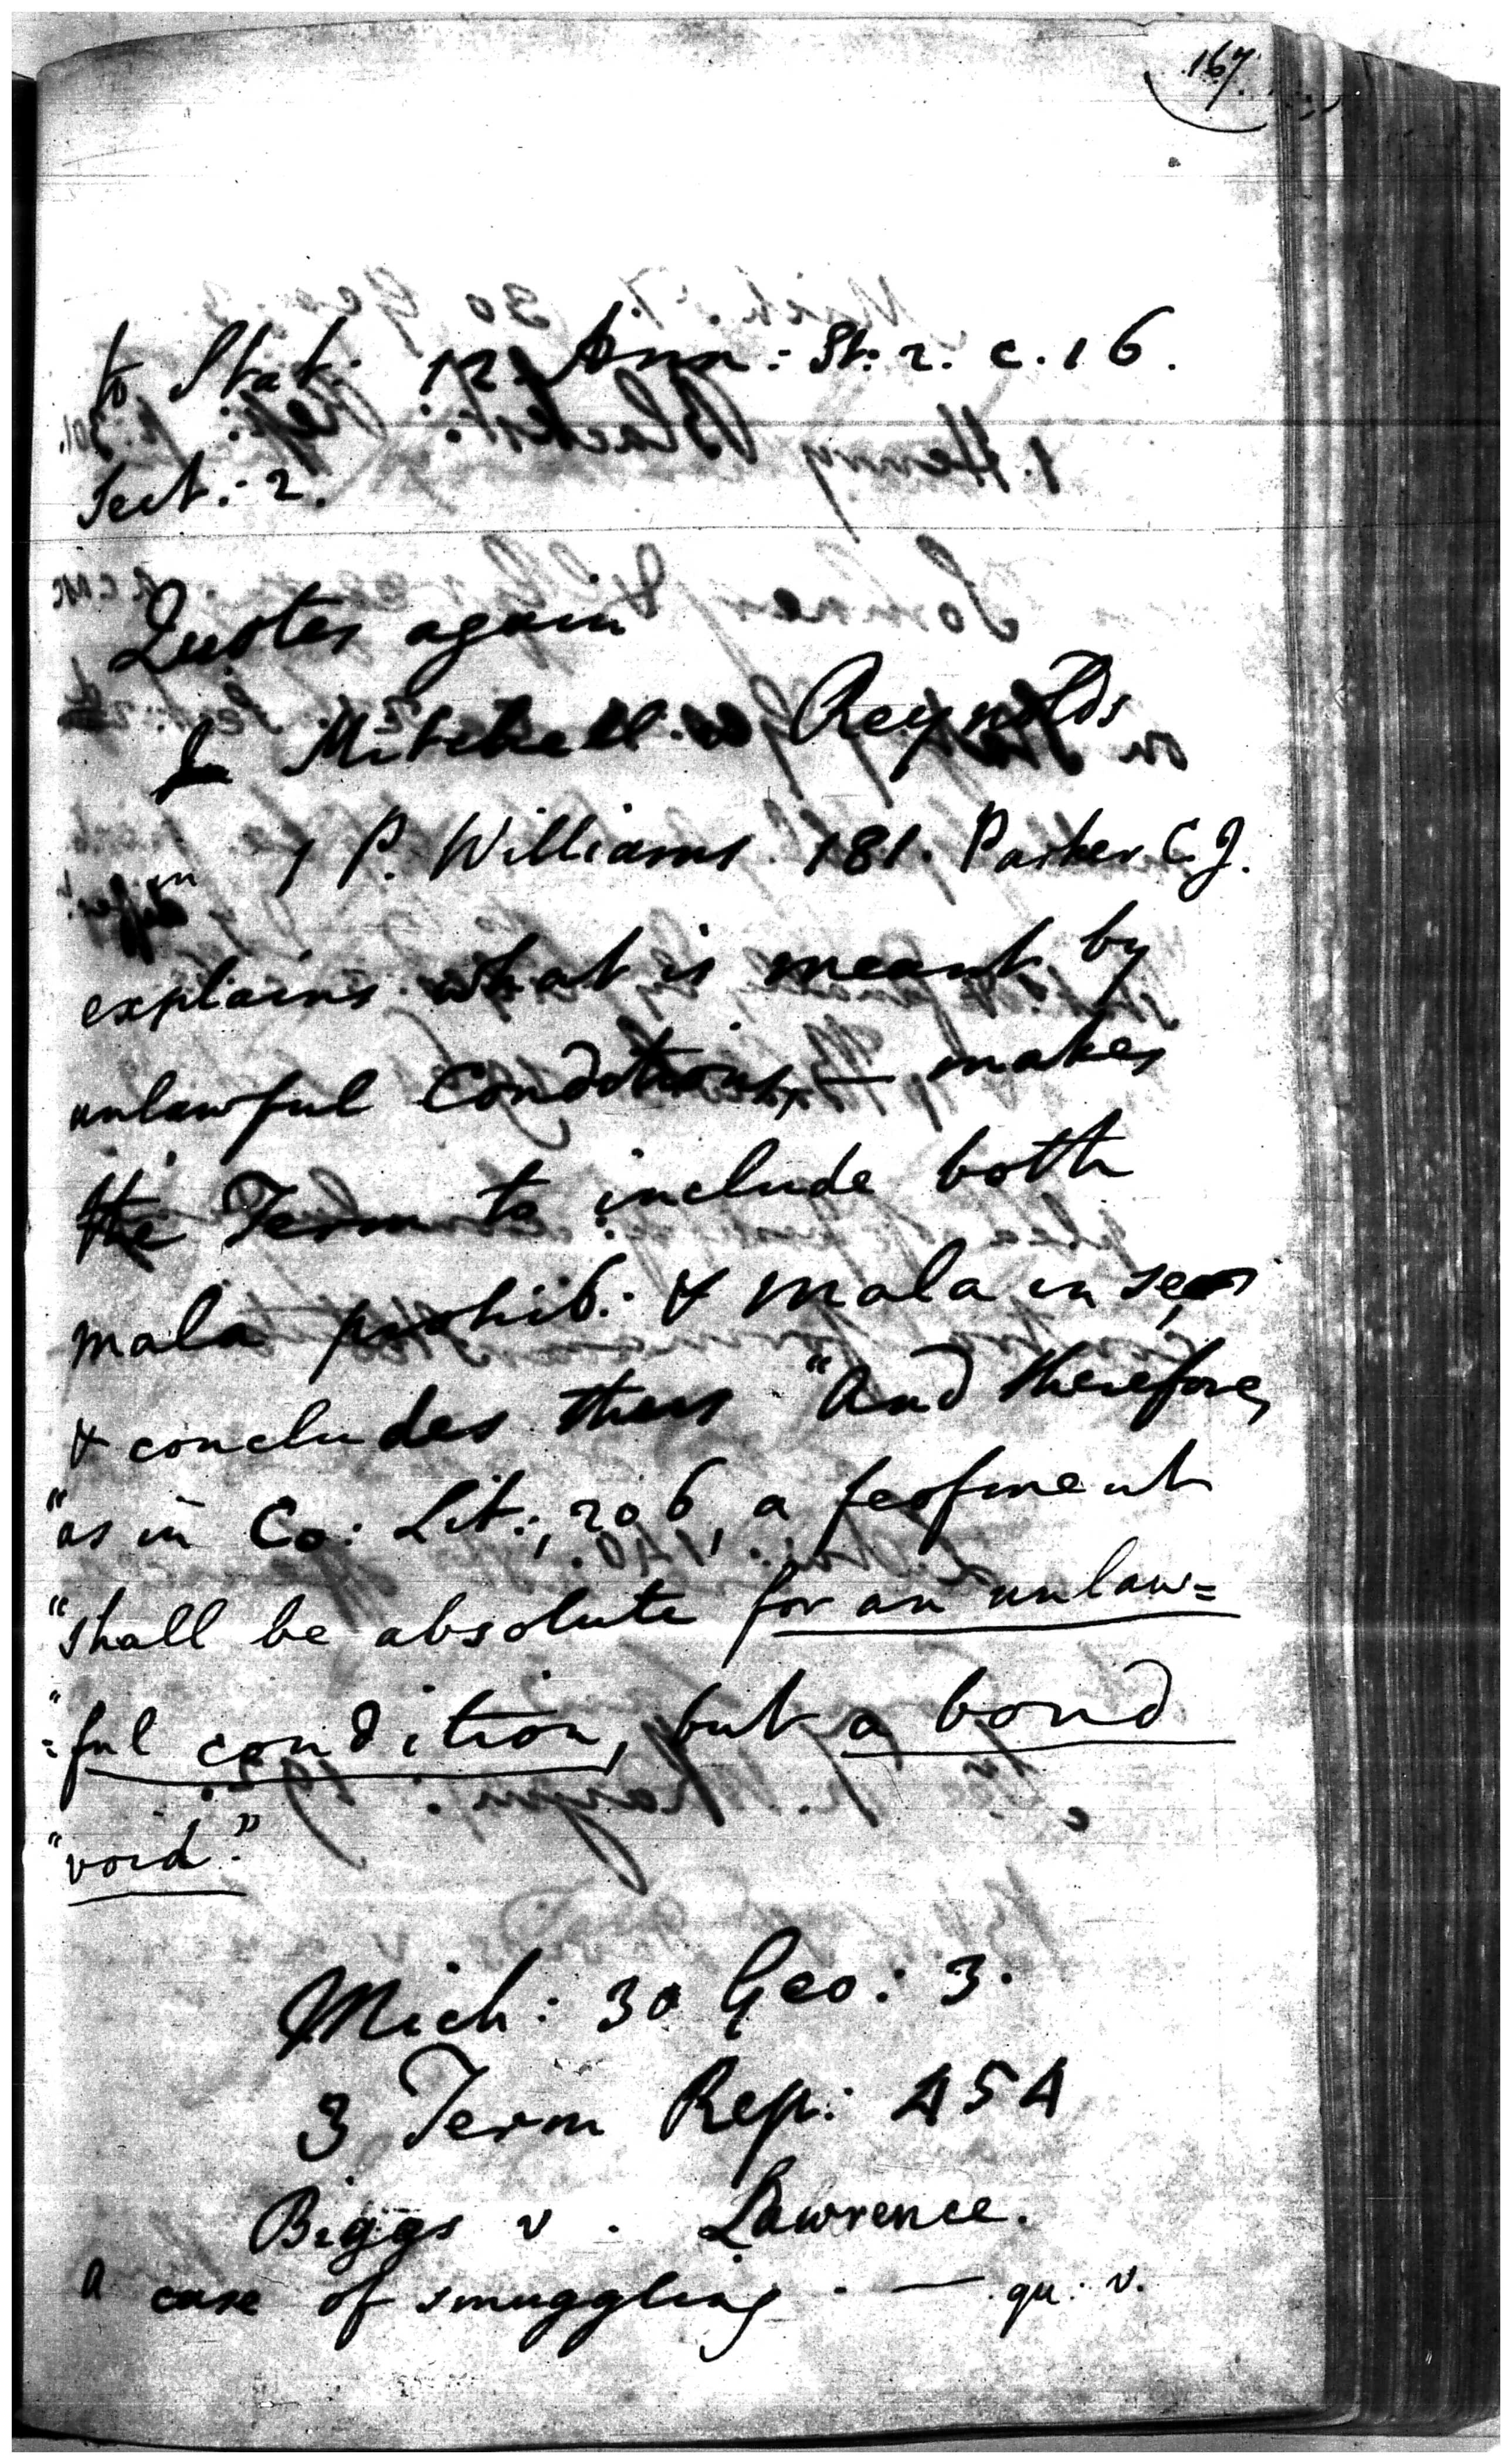 167.
to Stat: 12. Ann: St: 2. c. 16.
Sect: 2.
Quotes again
Mitchell v Reynolds
in 1 P. Williams 181. Parker C. J.
explains what is meant by
unlawful Conditions, — makes
the Term to include both
mala prohib: & mala in se,
& concludes thus "And therefore,
"as in Co: Lit:, 206, a feofment
"shall be absolute for an unlaw=
"=ful condition, but a bond
"void."
Mich: 30 Geo: 3.
3 Term Rep: 454
Biggs v. Lawrence.
a case of smuggling. — qu: v.